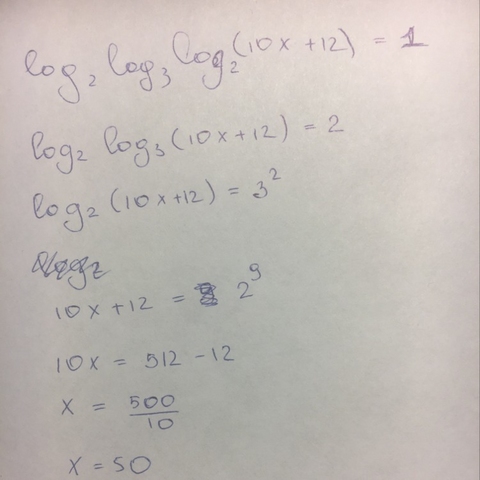 log₂ log₃ log₂(10x+12) = 1
log₂ log₃(10x+12) = 2
log₂(10x+12) = 3²
10x+12 = 2⁹
10x = 512 -12
x = 500/10
x = 50